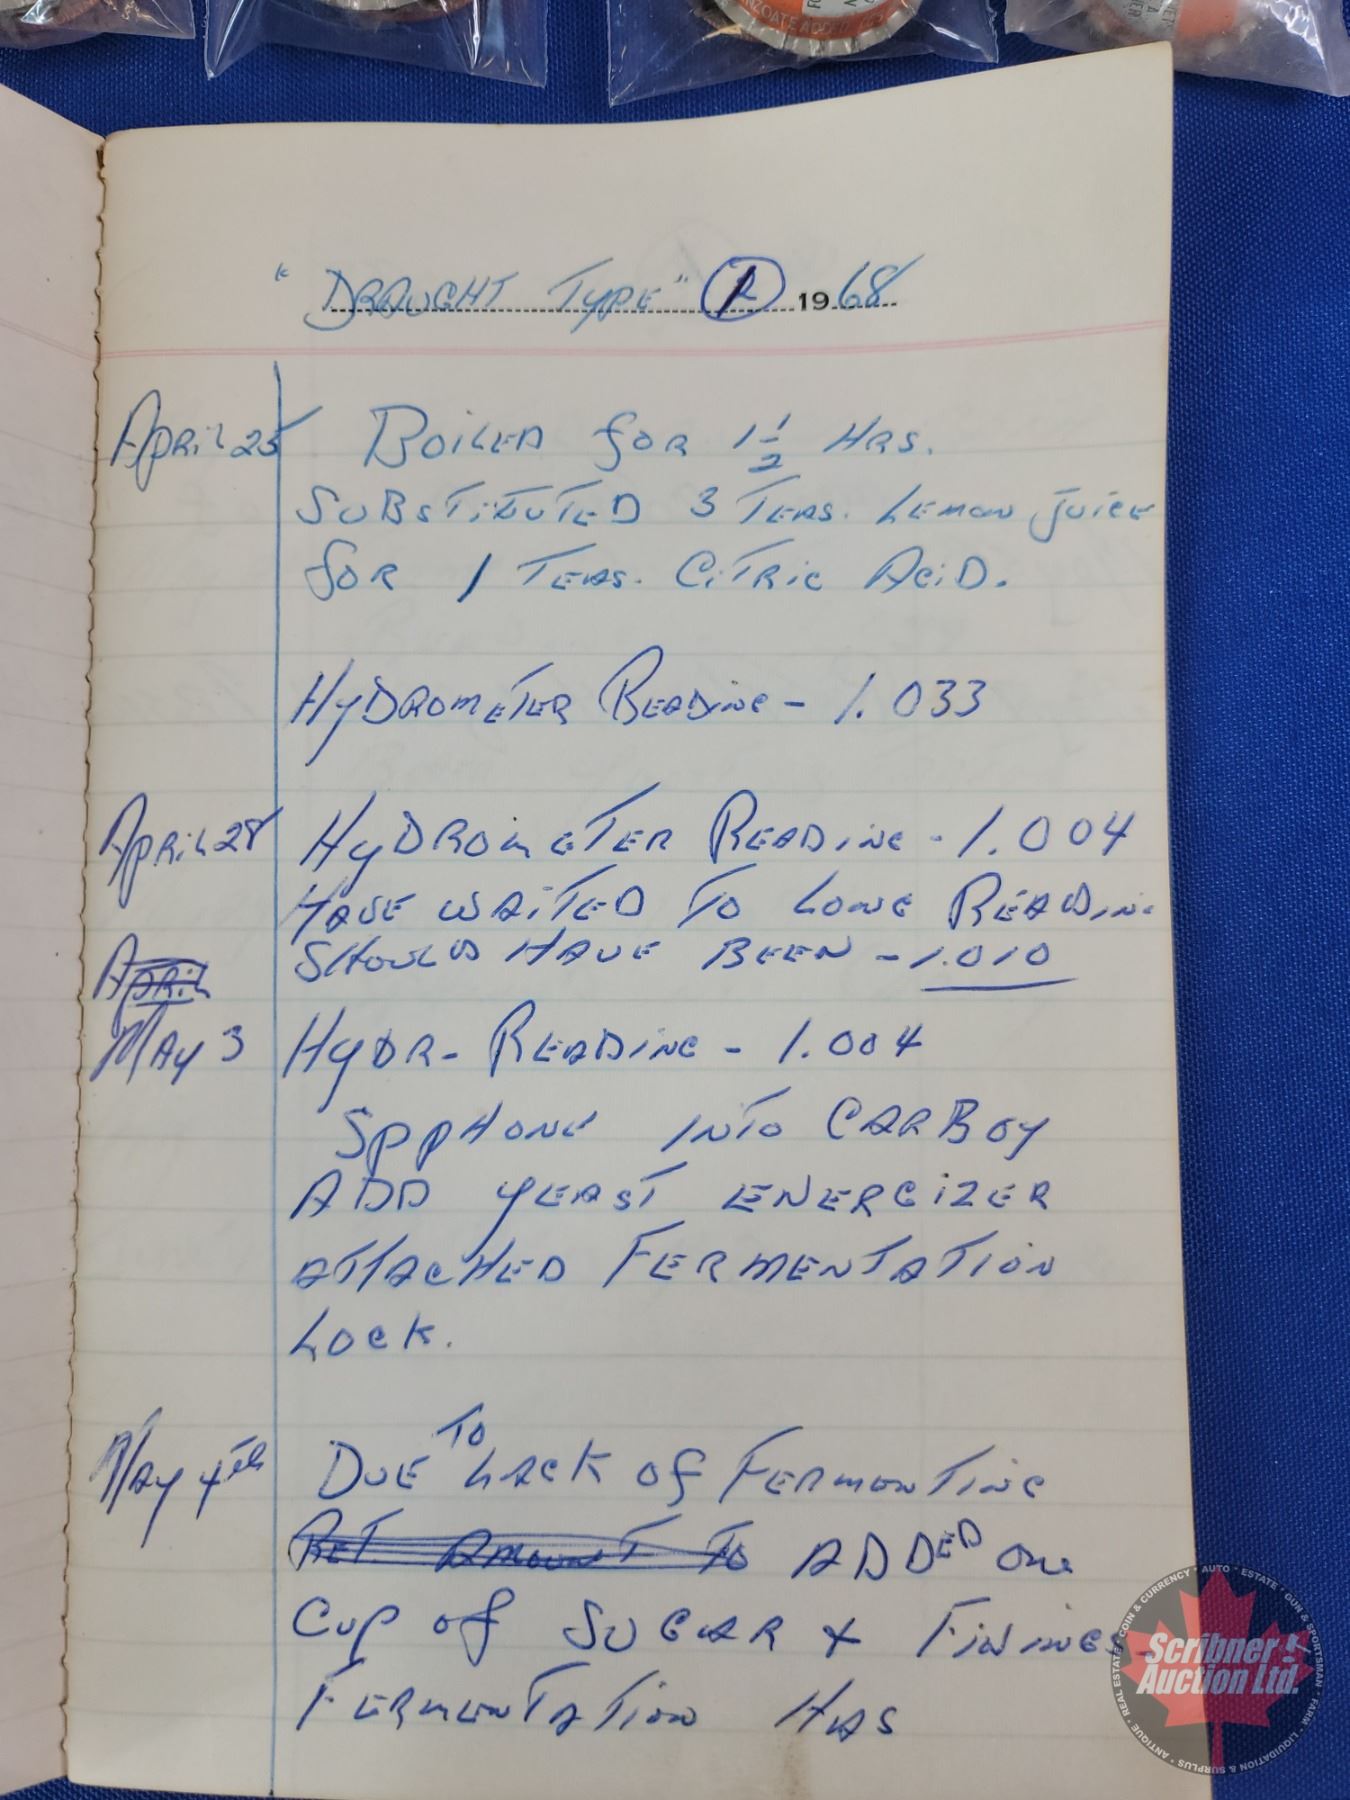 "DRAUGHT TYPE" 1 1968
April 25 BOILED for 1 1/2 HRS.
SUBSTITUTED 3 TEAS. LEMON JUICE
for 1 TEAS. CITRIC ACID.
HYDROMETER READING - 1.033
April 28 HYDROMETER READING - 1.004
HAVE WAITED TO LONG READING
SHOULD HAVE BEEN - 1.010
April
MAY 3 HYDR- READING - 1.004
SPPHONE INTO CARBOY
ADD YEAST ENERGIZER
ATTACHED FERMENTATION
LOCK.
MAY 4th DUE TO LACK of FERMENTING
RET. AMOUNT TO ADDED one
Cup of SUGAR + FININGS
FERMENTATION HAS
Scribner
Auction Ltd.
AUTO · ESTATE · GUN & SPORTSMAN · FARM · LIQUIDATION & SURPLUS · ANTIQUE · REAL ESTATE · COIN & CURRENCY